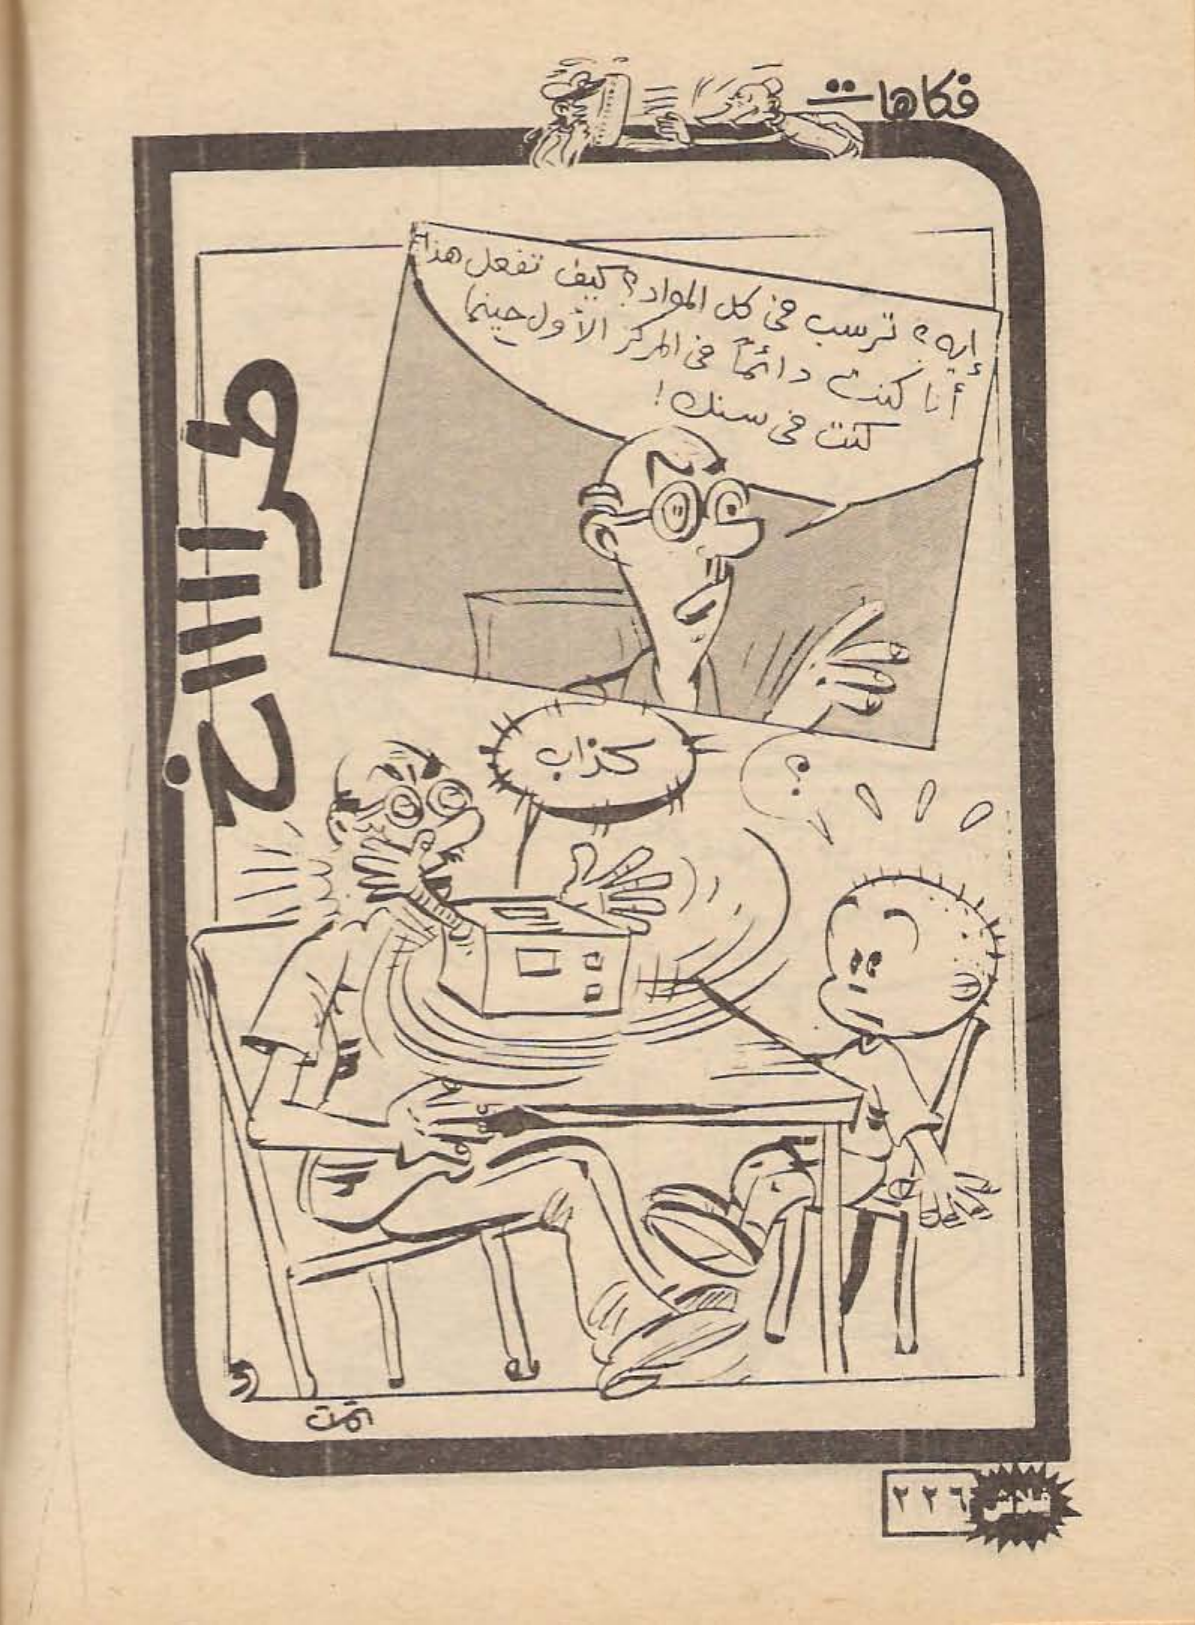 فكاهات
إيه؟ ترسب فى كل المواد؟ كيف تفعل هذا؟
أنا كنت دائماً فى المركز الأول حينما
كنت فى سنك!
طرااااخ
كذاب
؟
تمت
فلاش ٢٢٦